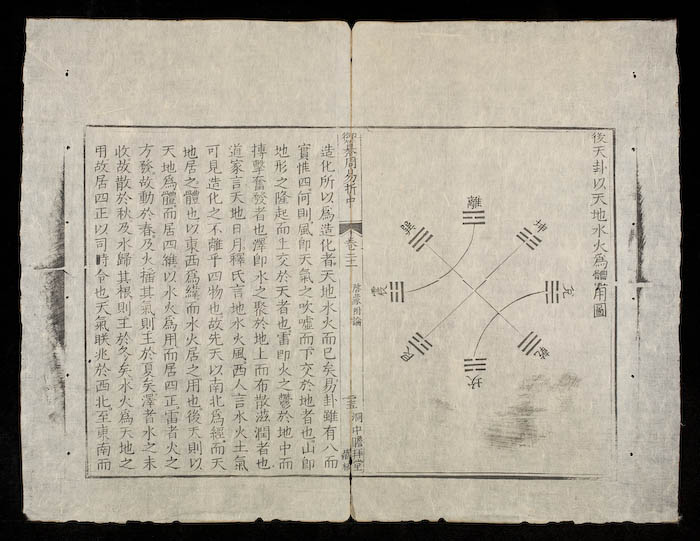 後天卦以天地水火爲體用圖
離
坤
兌
乾
坎
艮
震
巽
御纂周易折中
啓蒙附論
造化所以爲造化者天地水火而已矣易卦雖有八而
實惟四何則風即天氣之吹噓而下交於地者也山即
地形之隆起而上交於天者也雷即火之鬱於地中而
摶擊奮發者也澤即水之聚於地上而布散滋潤者也
道家言天地日月釋氏言地水火風西人言水火土氣
可見造化之不離乎四物也故先天以南北爲經而天
地居之體也以東西爲緯而水火居之用也後天則以
天地爲體而居四維以水火爲用而居四正雷者火之
方發故動於春及火播其氣則王於夏矣澤者水之未
收故散於秋及水歸其根則王於冬矣水火爲天地之
用故居四正以司時令也天氣朕兆於西北至東南而